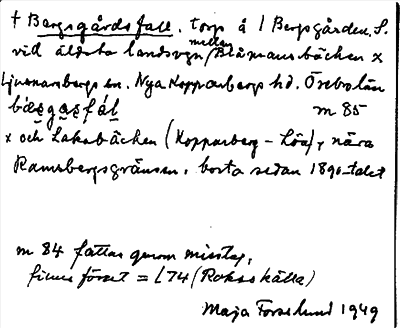 † Bergsgårdsfall. torp å / Bergsgården, S.
vid äldsta landsvgn mellan Blåmansbäcken x
Ljusnarsbergs sn. Nya Kopparbergs hd. Örebro län
m 85
x och Laksbäcken (Kopparberg - Löa), nära
Ramsbergsgränsen. borta sedan 1890-talet
m 84 fattas genom misstag,
finns förset =
Maja Forslund 1949